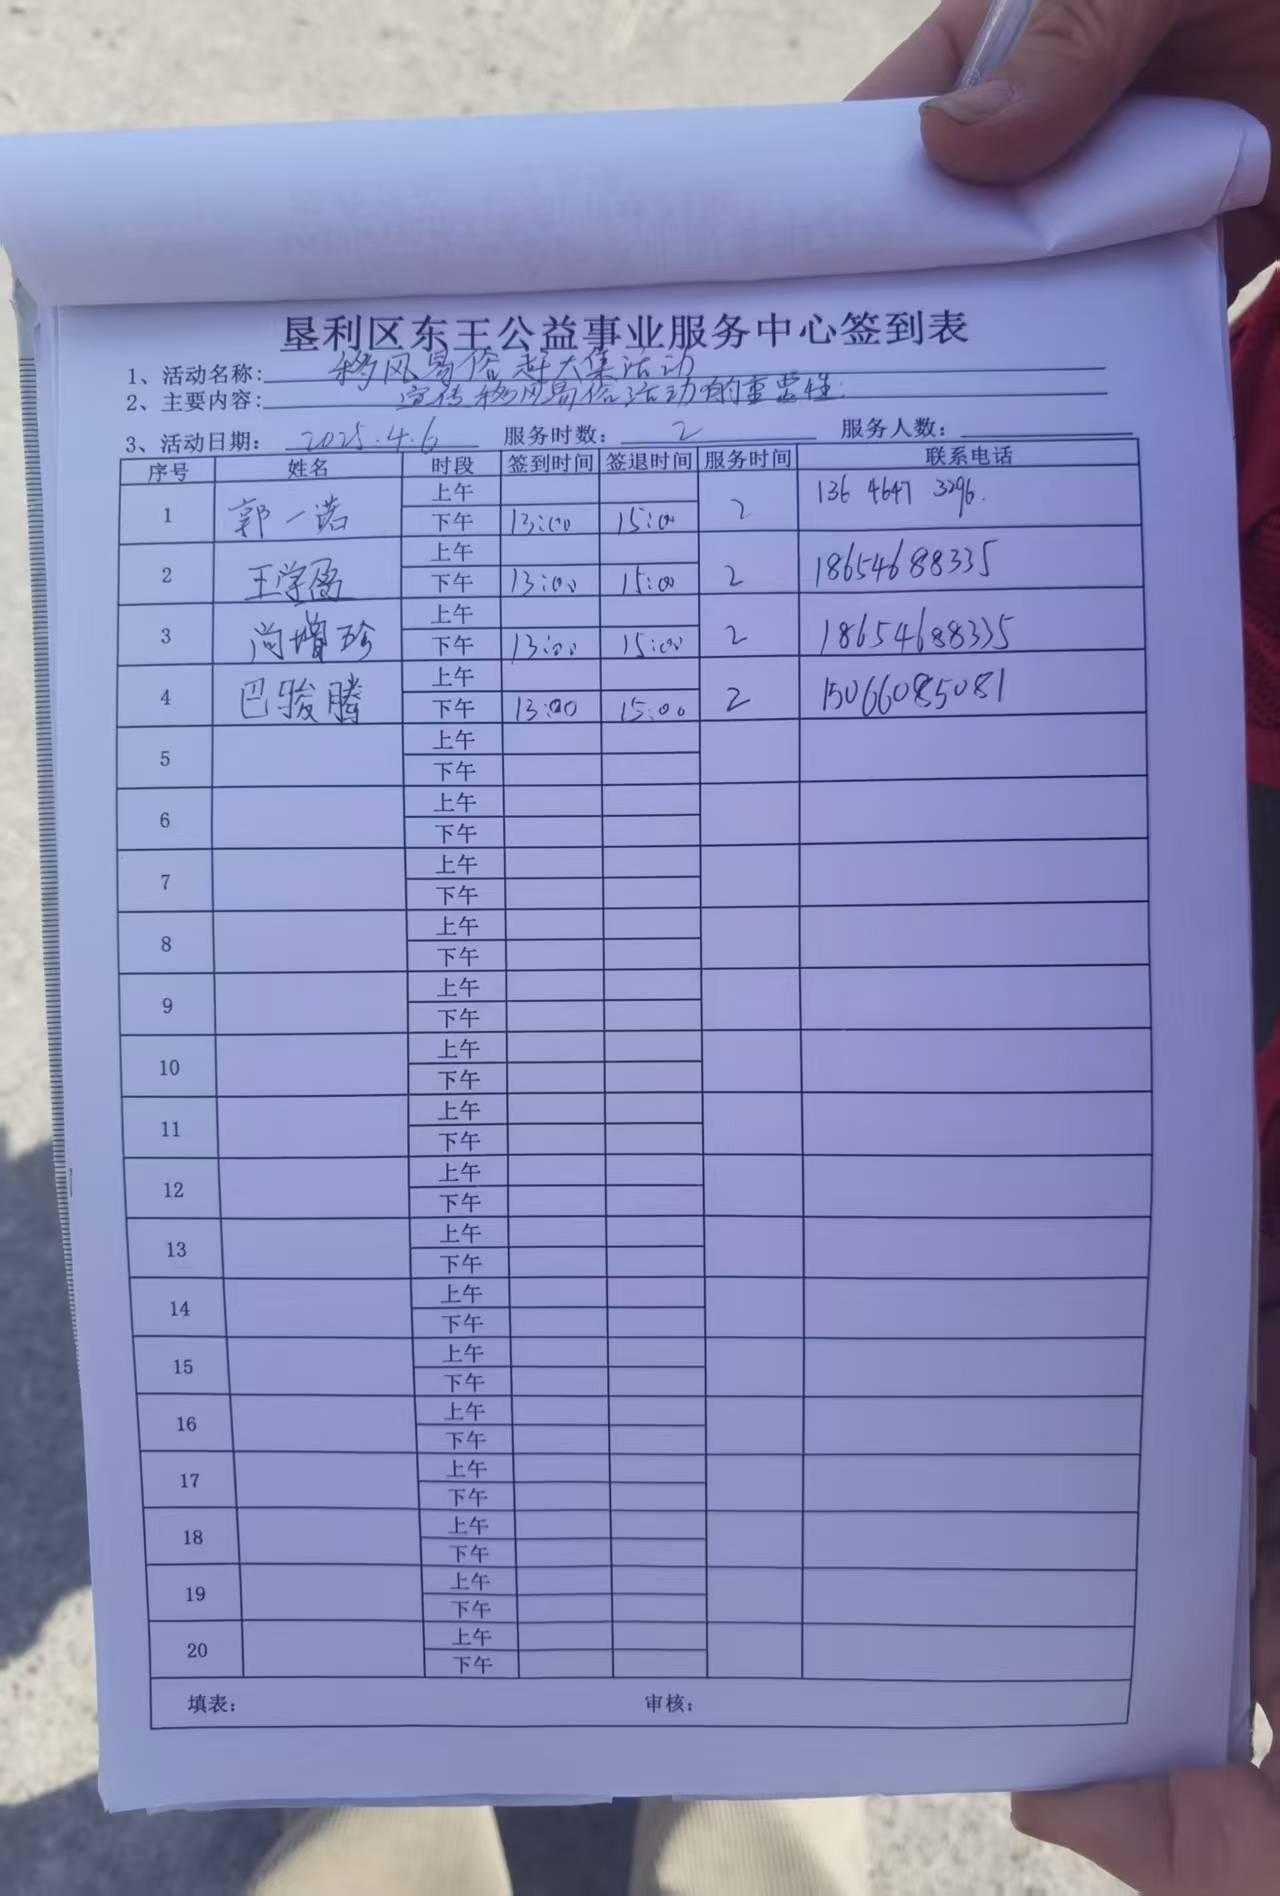 垦利区东王公益事业服务中心签到表
1、活动名称: 移风易俗赶大集活动
2、主要内容: 宣传移风易俗活动的重要性.
3、活动日期: 2025.4.6 服务时数: 2 服务人数:
序号 姓名 时段 签到时间 签退时间 服务时间 联系电话
1 郭一诺 上午 2 136 4647 3296.
下午 13:00 15:00
2 王学盈 上午 2 18654688335
下午 13:00 15:00
3 尚增珍 上午 2 18654688335
下午 13:00 15:00
4 巴骏腾 上午 2 15066085081
下午 13:00 15:00
5 上午
下午
6 上午
下午
7 上午
下午
8 上午
下午
9 上午
下午
10 上午
下午
11 上午
下午
12 上午
下午
13 上午
下午
14 上午
下午
15 上午
下午
16 上午
下午
17 上午
下午
18 上午
下午
19 上午
下午
20 上午
下午
填表: 审核: